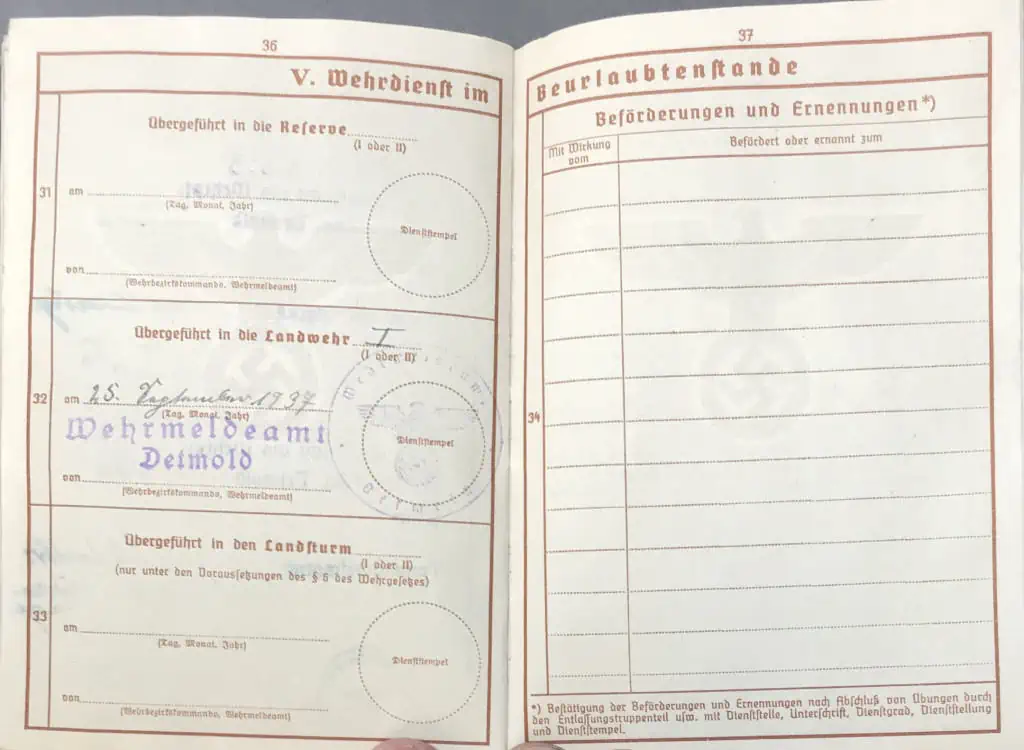 36
V. Wehrdienst im
31
Übergeführt in die Reserve
(I oder II)
am
(Tag, Monat, Jahr)
Dienststempel
von
(Wehrbezirkskommando, Wehrmeldeamt)
32
Übergeführt in die Landwehr I
(I oder II)
am 25. September 1937
(Tag, Monat, Jahr)
Wehrmeldeamt
Detmold
Dienststempel
von
(Wehrbezirkskommando, Wehrmeldeamt)
33
Übergeführt in den Landsturm
(I oder II)
(nur unter den Voraussetzungen des § 6 des Wehrgesetzes)
am
(Tag, Monat, Jahr)
Dienststempel
von
(Wehrbezirkskommando, Wehrmeldeamt)
37
Beurlaubtenstande
Beförderungen und Ernennungen*)
Mit Wirkung
vom
Befördert oder ernannt zum
34
*) Bestätigung der Beförderungen und Ernennungen nach Abschluß von Übungen durch
den Entlassungstruppenteil usw. mit Dienststelle, Unterschrift, Dienstgrad, Dienststellung
und Dienststempel.